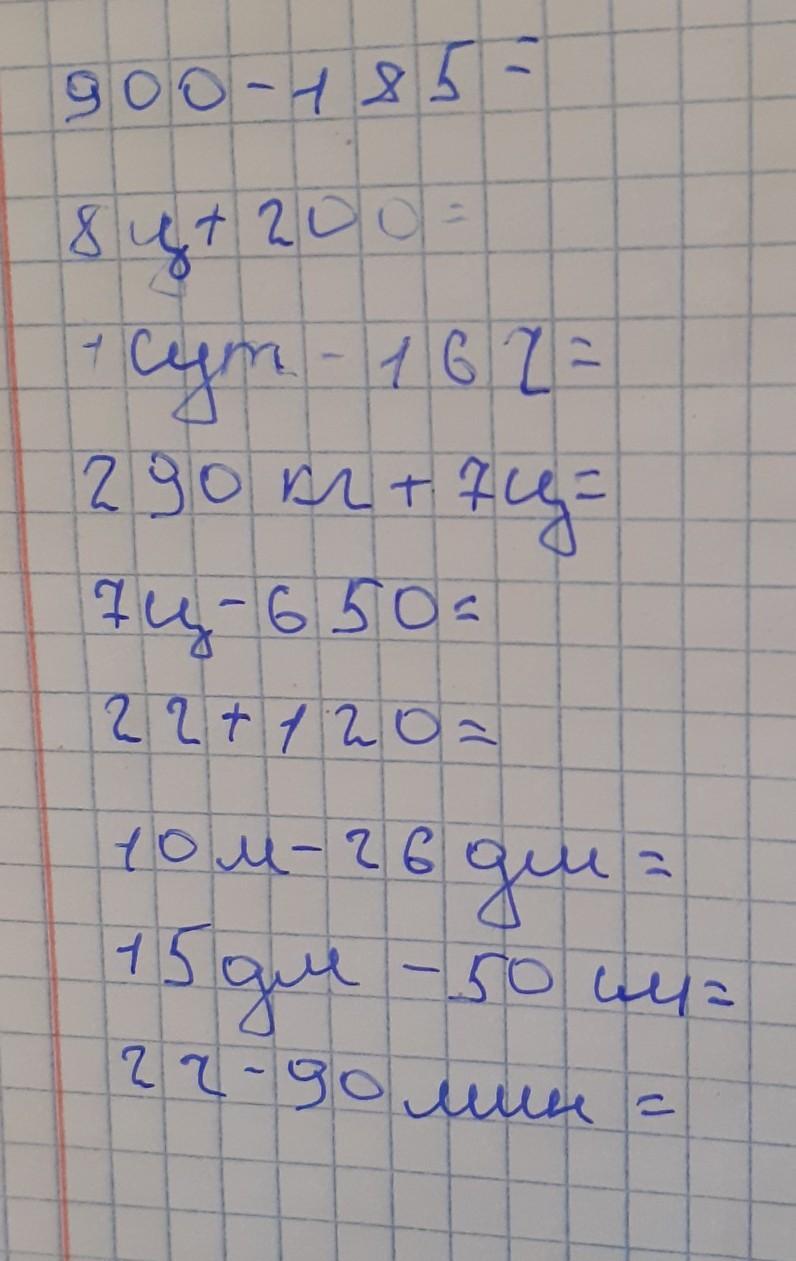 900-185=
8ц+200=
1сут-16ч=
290 кг+7ц=
7ц-650=
2ч+120=
10м-26дм=
15дм-50см=
2ч-90мин=